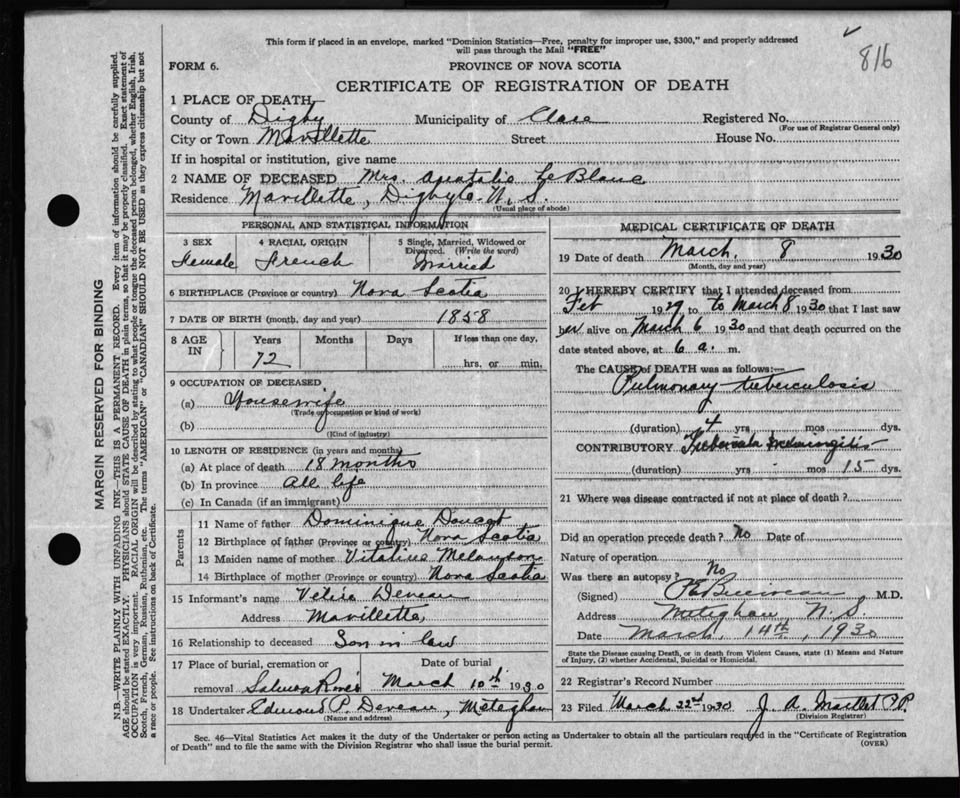 This form if placed in an envelope, marked "Dominion Statistics—Free, penalty for improper use, $300," and properly addressed
will pass through the Mail "FREE"
816
FORM 6.
PROVINCE OF NOVA SCOTIA
CERTIFICATE OF REGISTRATION OF DEATH
1 PLACE OF DEATH
County of Digby Municipality of Clare Registered No.
(For use of Registrar General only)
City or Town Mavillette Street House No.
If in hospital or institution, give name
2 NAME OF DECEASED Mrs. LeBlanc
Residence Mavillette, Digby Co. N.S.
(Usual place of abode)
PERSONAL AND STATISTICAL INFORMATION
3 SEX 4 RACIAL ORIGIN 5 Single, Married, Widowed or
Divorced. (Write the word)
Female French Married
6 BIRTHPLACE (Province or country) Nova Scotia
7 DATE OF BIRTH (month, day and year) 1858
8 AGE IN Years Months Days If less than one day,
72 hrs. or min.
9 OCCUPATION OF DECEASED
(a) Housewife
(Trade or occupation or kind of work)
(b)
(Kind of industry)
10 LENGTH OF RESIDENCE (in years and months)
(a) At place of death 18 months
(b) In province All life
(c) In Canada (if an immigrant)
Parents
11 Name of father Dominique Doucet
12 Birthplace of father (Province or country) Nova Scotia
13 Maiden name of mother Vitaline Melanson
14 Birthplace of mother (Province or country) Nova Scotia
15 Informant's name Deveau
Address Mavillette,
16 Relationship to deceased Son in law
17 Place of burial, cremation or Date of burial
removal Salmon River March 10th 1930
18 Undertaker Edmond P. Deveau, Meteghan
(Name and address)
MEDICAL CERTIFICATE OF DEATH
19 Date of death March, 8 1930
(Month, day and year)
20 I HEREBY CERTIFY that I attended deceased from
Feb 1929 to March 8 1930 that I last saw
her alive on March 6 1930 and that death occurred on
date stated above, at 6 a. m.
The CAUSE of DEATH was as follows:—
Pulmonary tuberculosis
(duration) 4 yrs mos dys.
CONTRIBUTORY meningitis
(duration) yrs - mos 15 dys.
21 Where was disease contracted if not at place of death?
Did an operation precede death? No Date of
Nature of operation
Was there an autopsy? No
(Signed) M.D.
Address Meteghan N.S.
Date March, 14th, 1930
State the Disease causing Death, or in death from Violent Causes, state (1) Means and Nature
of Injury, (2) whether Accidental, Suicidal or Homicidal.
22 Registrar's Record Number
23 Filed March 22nd 1930 J. A. Maillet P.P.
(Division Registrar)
Sec. 46—Vital Statistics Act makes it the duty of the Undertaker or person acting as Undertaker to obtain all the particulars required in the "Certificate of Registration
of Death" and to file the same with the Division Registrar who shall issue the burial permit.
(OVER)
MARGIN RESERVED FOR BINDING
N.B.—WRITE PLAINLY WITH UNFADING INK—THIS IS A PERMANENT RECORD. Every item of information should be carefully supplied.
AGE should be stated EXACTLY. PHYSICIANS should STATE CAUSE OF DEATH in plain terms, so that it may be properly classified. Exact statement of
OCCUPATION is very important. RACIAL ORIGIN will be described by stating to what people or tongue the deceased person belonged, whether English, Irish,
Scotch, French, German, Russian, Ruthenian, etc. The terms "AMERICAN" or "CANADIAN" SHOULD NOT BE USED as they express citizenship but not
a race or people. See instructions on back of Certificate.